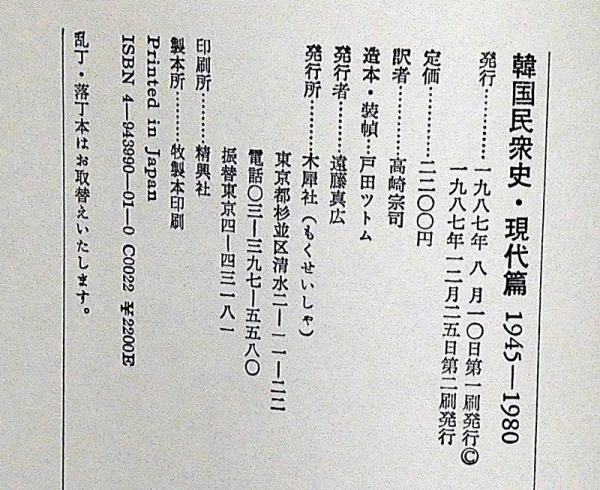 韓国民衆史・現代篇 1945—1980
発行………一九八七年 八 月一〇日第一刷発行©
一九八七年一二月二五日第二刷発行
定価………二二〇〇円
訳者………高崎宗司
造本・装幀…戸田ツトム
発行者……遠藤真広
発行所……木犀社（もくせいしゃ）
東京都杉並区清水二—一一—二二
電話〇三—三九七—五五八〇
振替東京四—四三一八一
印刷所……精興社
製本所……牧製本印刷
Printed in Japan
ISBN 4—943990—01—0 C0022 ¥2200E
乱丁・落丁本はお取替えいたします。